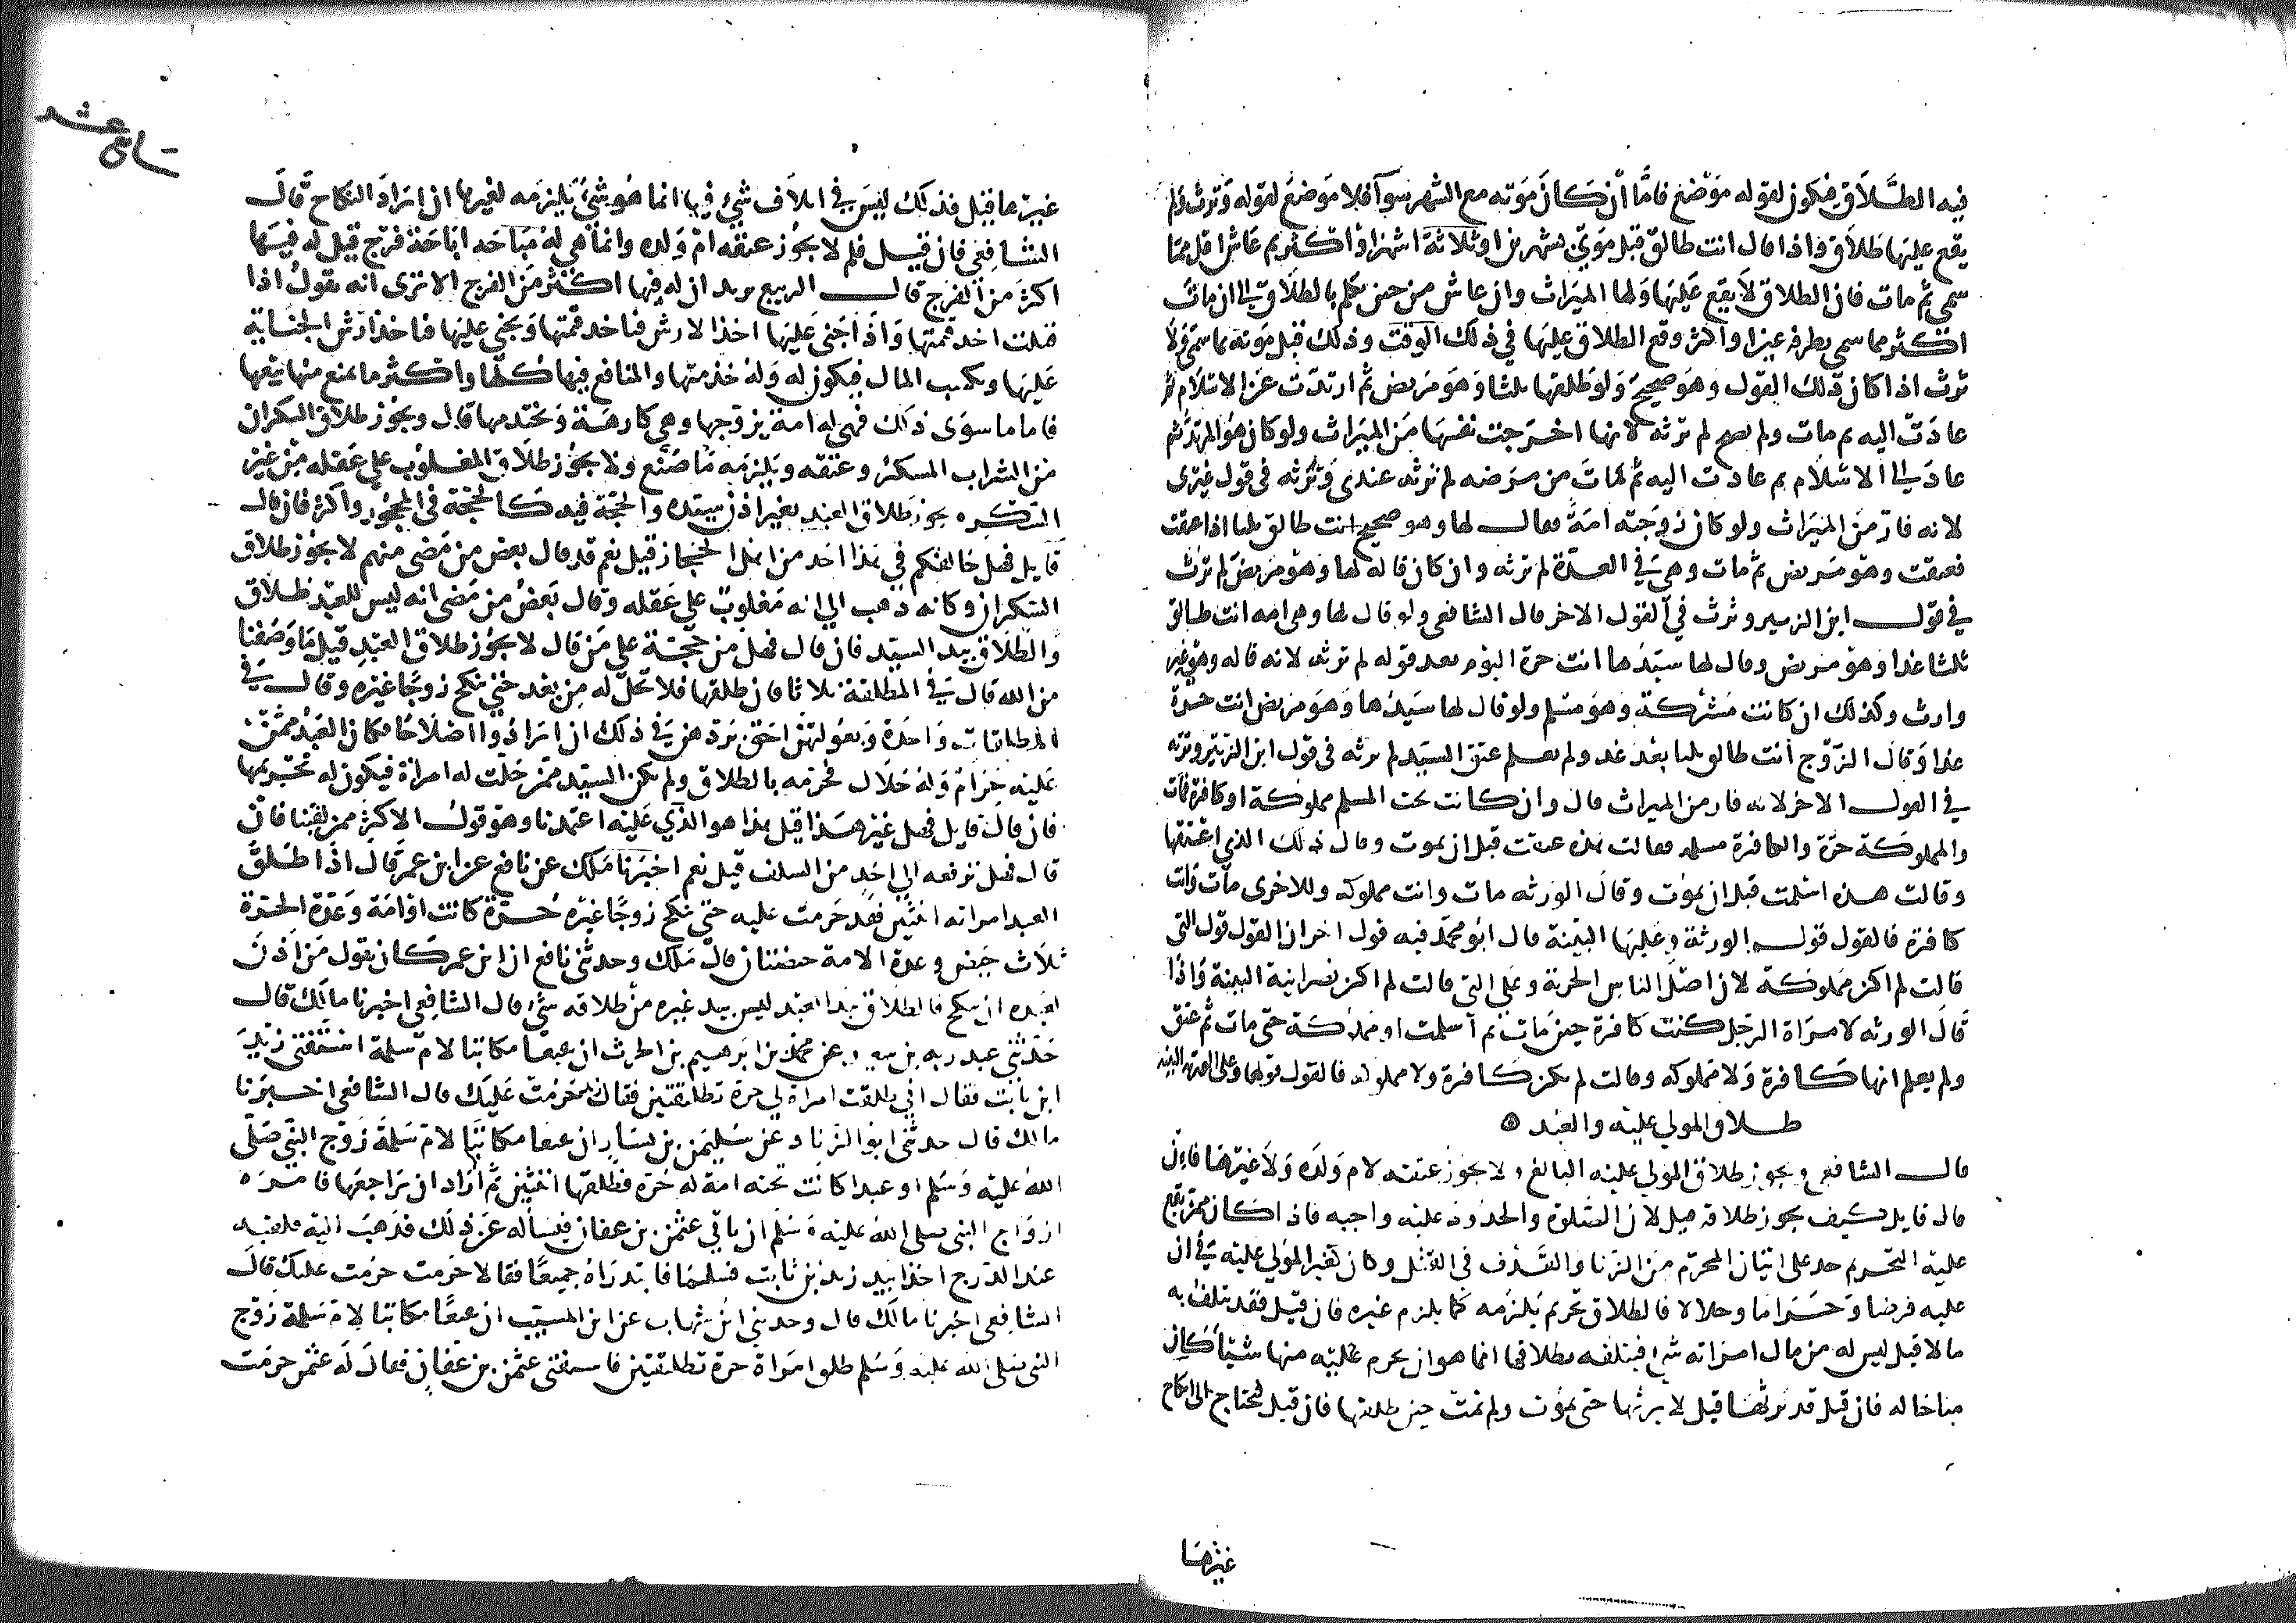 فيه الطلاق فيكون لقوله موضع فاما ان كان موته مع الشهر سوآ فلا موضع لقوله وترث ولم
يقع عليها طلاق واذا قال انت طالق قبل موتي بشهرين او ثلاثة اشهر او اكثر ثم عاش اقل مما
سمى ثم مات فان الطلاق لا يقع عليها ولها الميراث وان عاش من حين تكلم بالطلاق الى ان مات
اكثر مما سمى بطرفة عين او اكثر وقع الطلاق عليها في ذلك الوقت وذلك قبل موته بما سمى ولا
ترث اذا كان ذلك القول وهو صحيح ولو طلقها ثلثا وهو مريض ثم ارتدت عن الاسلام ثم
عادت اليه ثم مات ولم يصح لم ترثه لانها اخرجت نفسها من الميراث ولو كان هو المرتد ثم
عاد الى الاسلام ثم عادت اليه ثم مات من مرضه لم ترثه عندي وترثه في قول غيري
لانه فار من الميراث ولو كان زوجته امة فقال لها وهو صحيح انت طالق ثلثا اذا عتقت
فعتقت وهو مريض ثم مات وهي في العدة لم ترثه وان كان قاله لها وهو مريض لم ترث
في قول ابن الزبير وترث في القول الاخر قال الشافعي ولو قال لها وهي امه انت طالق
ثلثا غدا وهو مريض وقال لها سيدها انت حرة اليوم بعد قوله لم ترثه لانه قاله وهي غير
وارث وكذلك ان كانت مشركة وهو مسلم ولو قال لها سيدها وهو مريض انت حرة
غدا وقال الزوج انت طالق ثلثا بعد غد ولم يعلم عتق السيد لم ترثه في قول ابن الزبير وترثه
في القول الاخر لانه فار من الميراث قال وان كانت تحت المسلم مملوكة او كافرة فمات
والمملوكة حرة والكافرة مسلمه فقالت هذه عتقت قبل ان يموت وقال ذلك الذي اعتقها
وقالت هذه اسلمت قبل ان يموت وقال الورثه مات وانت مملوكه وللاخرى مات وانت
كافرة فالقول قول الورثة وعليها البينة قال ابو محمد فيه قول اخر ان القول قول التي
قالت لم اكن مملوكة لان اصل الناس الحرية وعلى التي قالت لم اكن نصرانية البينة واذا
قال الورثه لامراة الرجل كنت كافرة حين مات ثم اسلمت او مملوكة حتى مات ثم عتق
ولم يعلم انها كافرة ولا مملوكه وقالت لم اكن كافرة ولا مملوكه فالقول قولها وعلى الورثه البينه
طلاق المولى عليه والعبد
قال الشافعي ويجوز طلاق المولى عليه البالغ ولا يجوز عتقه لام ولده ولا غيرها فان
قال قايل فكيف يجوز طلاقه قيل لان الصلوة والحدود عليه واجبه فاذا كان ممن يقع
عليه التحريم حد على اتيان المحرم من الزنا والقذف في القتل وكان كغير المولى عليه في ان
عليه فرضا وحراما وحلالا فالطلاق تحريم يلزمه كما يلزم غيره فان قيل فقد يتلف به
مالا قيل ليس له من مال امراته شي فيتلفه بطلاقها انما هو ان يحرم عليه منها شيئا كان
مباحا له فان قيل قد يرثها قيل لا يرثها حتى تموت ولم تمت حين طلقها فان قيل فيحتاج الى نكاح
غيرها
غيرها قيل فذلك ليس في اتلاف شي فيها انما هو شي يلزمه لغيرها ان اراد النكاح قال
الشافعي فان قيل فلم لا يجوز عتقه ام ولده وانما هي له مباحه اباحة فرج قيل له فيها
اكثر من الفرج قال الربيع يريد ان له فيها اكثر من الفرج الا ترى انه يقول اذا
قتلت اخذ قيمتها واذا جني عليها اخذ الارش فناخذ قيمتها ويجنى عليها فناخذ ارش الجناية
عليها وتكسب المال فيكون له وله خدمتها والمنافع فيها كلها واكثر ما يمنع منها بيعها
فاما ما سوى ذلك فهي له امة يزوجها وهي كارهة ويختدمها قال ويجوز طلاق السكران
من الشراب المسكر وعتقه ويلزمه ما صنع ولا يجوز طلاق المغلوب على عقله من غير
السكر ويجوز طلاق العبد بغير اذن سيده والحجة فيه كالحجة في المحجور واكثر فان قال
قايل فهل خالفكم في هذا احد من اهل الحجاز قيل نعم قد قال بعض من مضى منهم لا يجوز طلاق
السكران وكانه ذهب الى انه مغلوب على عقله وقال بعض من مضى انه ليس للعبد طلاق
والطلاق بيد السيد فان قال فهل من حجة على من قال لا يجوز طلاق العبد قيل ما وصفنا
من الله قال في المطلقة ثلاثا فان طلقها فلا تحل له من بعد حتى تنكح زوجا غيره وقال في
المطلقات واحدة وبعولتهن احق بردهن في ذلك ان ارادوا اصلاحا فكان العبد ممن
عليه حرام وله حلال فحرمه بالطلاق ولم يكن السيد ممن حلت له امراة فيكون له تحريمها
فان قال قايل فهل غير هذا قيل هذا هو الذي عليه اعتمدنا وهو قول الاكثر ممن لقينا فان
قال فهل ترفعه الى احد من السلف قيل نعم اخبرنا ملك عن نافع عن ابن عمر قال اذا طلق
العبد امراته اثنتين فقد حرمت عليه حتى تنكح زوجا غيره حرة كانت او امة وعدة الحرة
ثلاث حيض وعدة الامة حيضتان قال ملك وحدثني نافع ان ابن عمر كان يقول من اذن
لعبده ان ينكح فالطلاق بيد العبد ليس بيد غيره من طلاقه شي قال الشافعي اخبرنا مالك قال
حدثني عبد ربه بن سعيد عن محمد بن ابرهيم بن الحرث ان نفيعا مكاتبا لام سلمة استفتى زيد
ابن ثابت فقال اني طلقت امراة لي حرة تطليقتين فقال حرمت عليك قال الشافعي اخبرنا
مالك قال حدثني ابو الزناد عن سليمن بن يسار ان نفيعا مكاتبا لام سلمة زوج النبي صلى
الله عليه وسلم او عبدا كانت تحته امراة له حرة فطلقها اثنتين ثم اراد ان يراجعها فامره
ازواج النبي صلى الله عليه وسلم ان ياتي عثمن بن عفان فيساله عن ذلك فذهب اليه فلقيه
عند الدرج اخذا بيد زيد بن ثابت فسلهما فابتدراه جميعا فقالا حرمت حرمت عليك قال
الشافعي اخبرنا مالك قال وحدثني ابن شهاب عن ابن المسيب ان نفيعا مكاتبا لام سلمة زوج
النبي صلى الله عليه وسلم طلق امراة حرة تطليقتين فاستفتى عثمن بن عفان فقال له عثمن حرمت